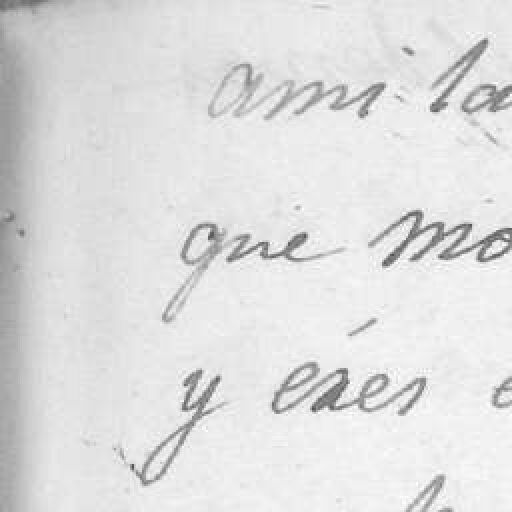 ami la
que mo
y eres e